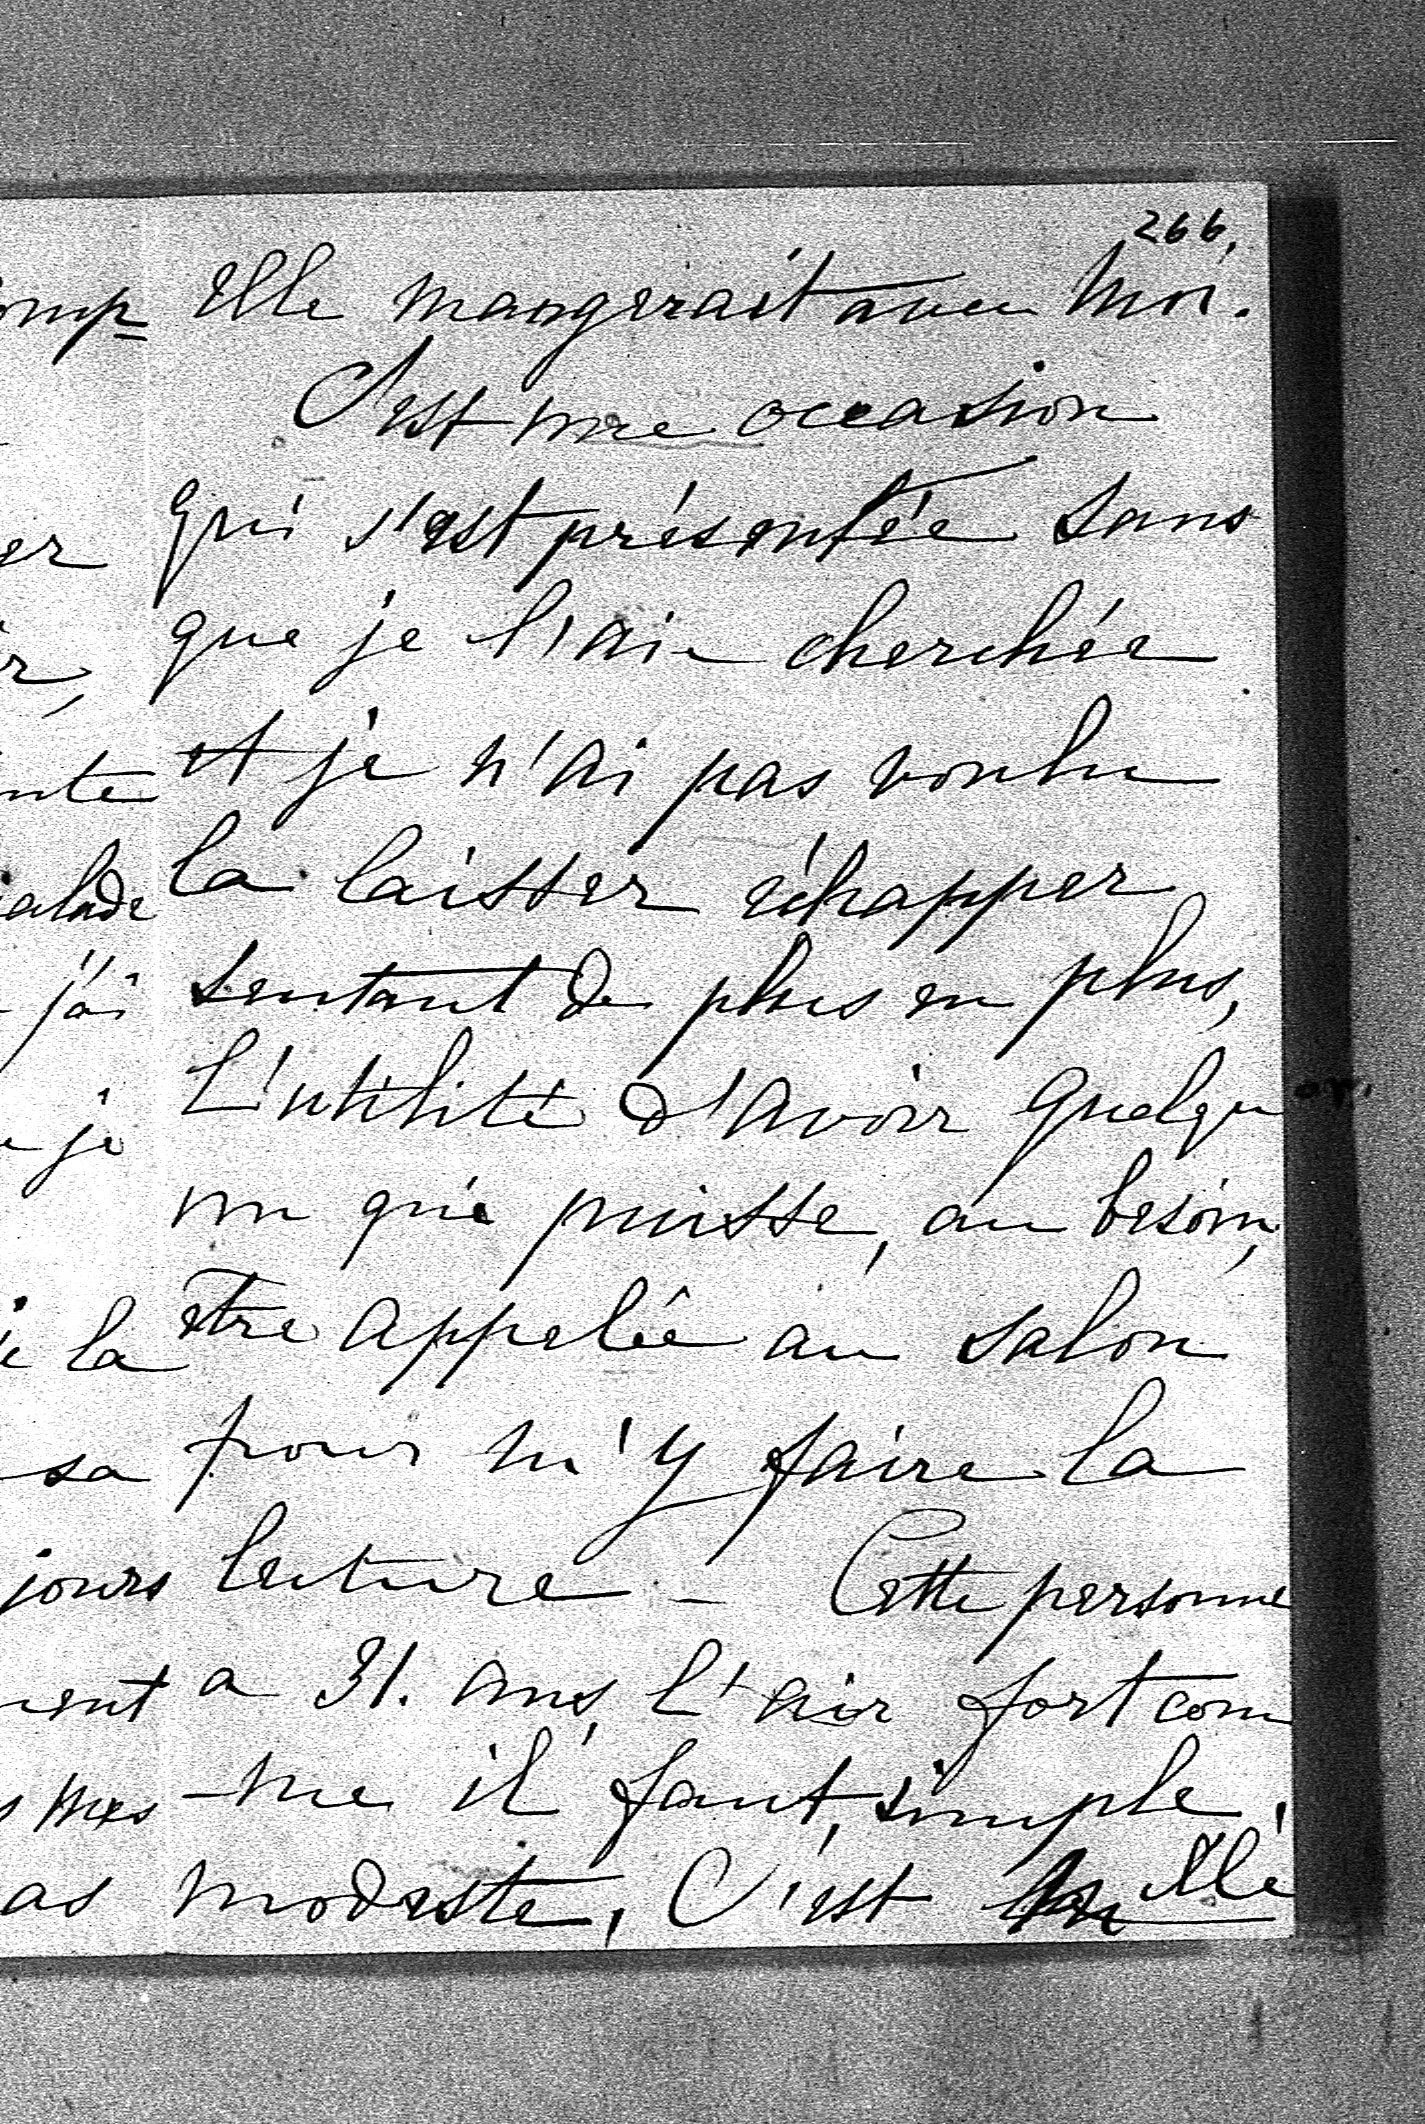 266.
Elle mangerait avec moi.
C'est une occasion
qui s'est présentée sans
que je l'aie cherchée
et je n'ai pas voulu
la laisser échapper
sentant de plus en plus,
L'utilité d'avoir quelqu
un qui puisse, au besoin,
être appelée au salon
pour m'y faire la
lecture - Cette personne
a 31. ans, l'air fort com
-me il faut, simple,
modeste, C'est Mlle
omp
er
r,
nte
alade
j'ai
je
la
sa
jours
ment
mes
as